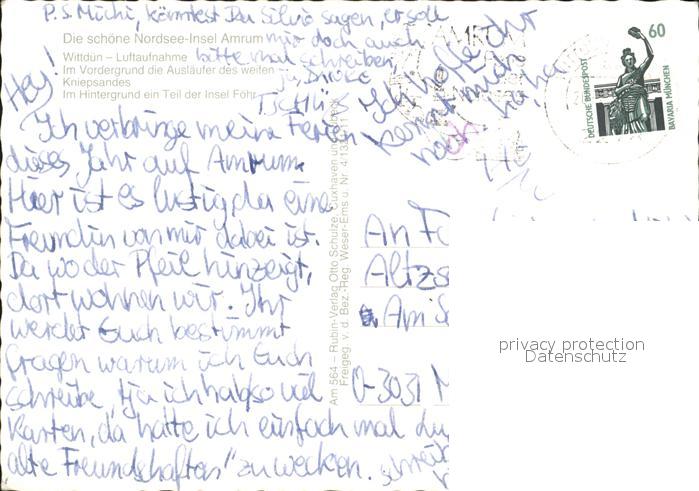 P.S. Michi, könntest Du Silvio sagen, er soll
mir doch auch
bitte mal schreiben,
ja, Danke
Tschüs
Ich hoffe ihr
kennt mich
noch haha
Die schöne Nordsee-Insel Amrum
Wittdün – Luftaufnahme
Im Vordergrund die Ausläufer des weiten
Kniepsandes
Im Hintergrund ein Teil der Insel Föhr
60
DEUTSCHE BUNDESPOST
BAVARIA MÜNCHEN
Hey!
Ich verbringe meine Ferien
dieses Jahr auf Amrum.
Hier ist es lustig da eine
Freundin von mir dabei ist.
Da wo der Pfeil hinzeigt,
dort wohnen wir. Ihr
werdet Euch bestimmt
fragen warum ich Euch
schreibe, tja ich hab so viel
Karten, da hatte ich einfach mal Lu
alte Freundschaften" zu wecken.
schreib
Am 564 – Rubin-Verlag Otto Schulze, Cuxhaven
Freigeg. v. d. Bez.-Reg. Weser-Ems u. Nr.
An Fa
Altzs
Am S
O-3031 M
privacy protection
Datenschutz